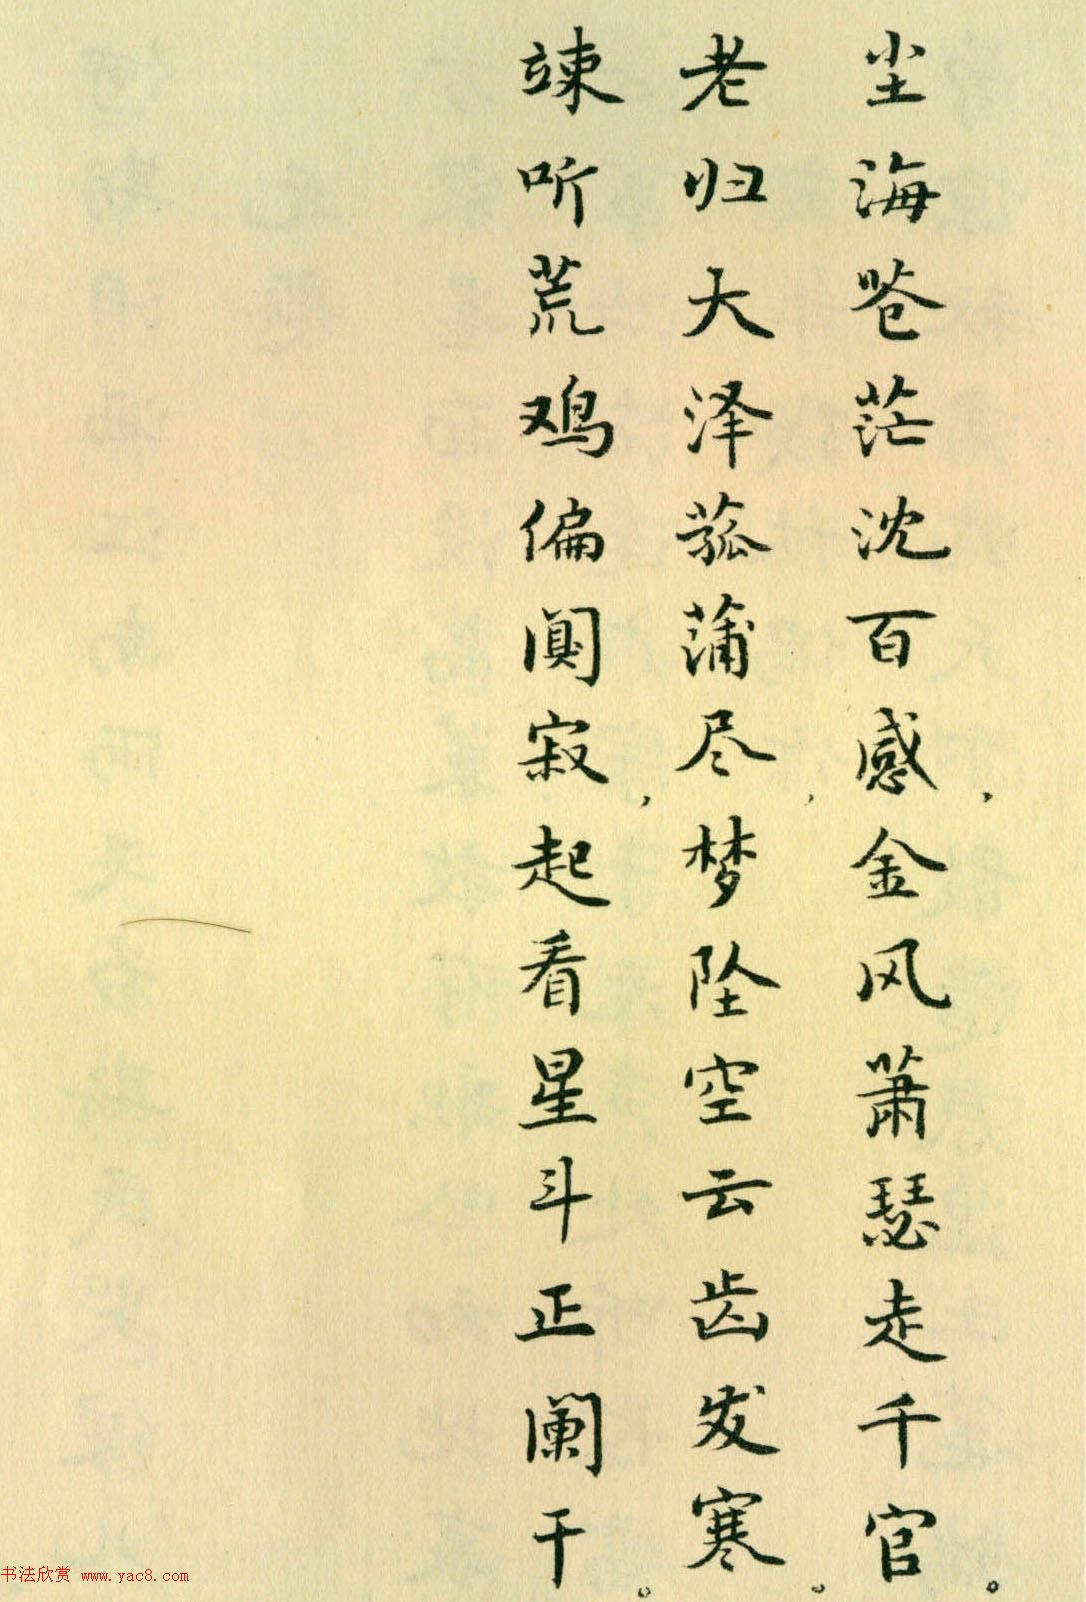 尘海苍茫沈百感，金风萧瑟走千官。
老归大泽菰蒲尽，梦坠空云齿发寒。
竦听荒鸡偏阒寂，起看星斗正阑干
。
书法欣赏 www.yac8.com